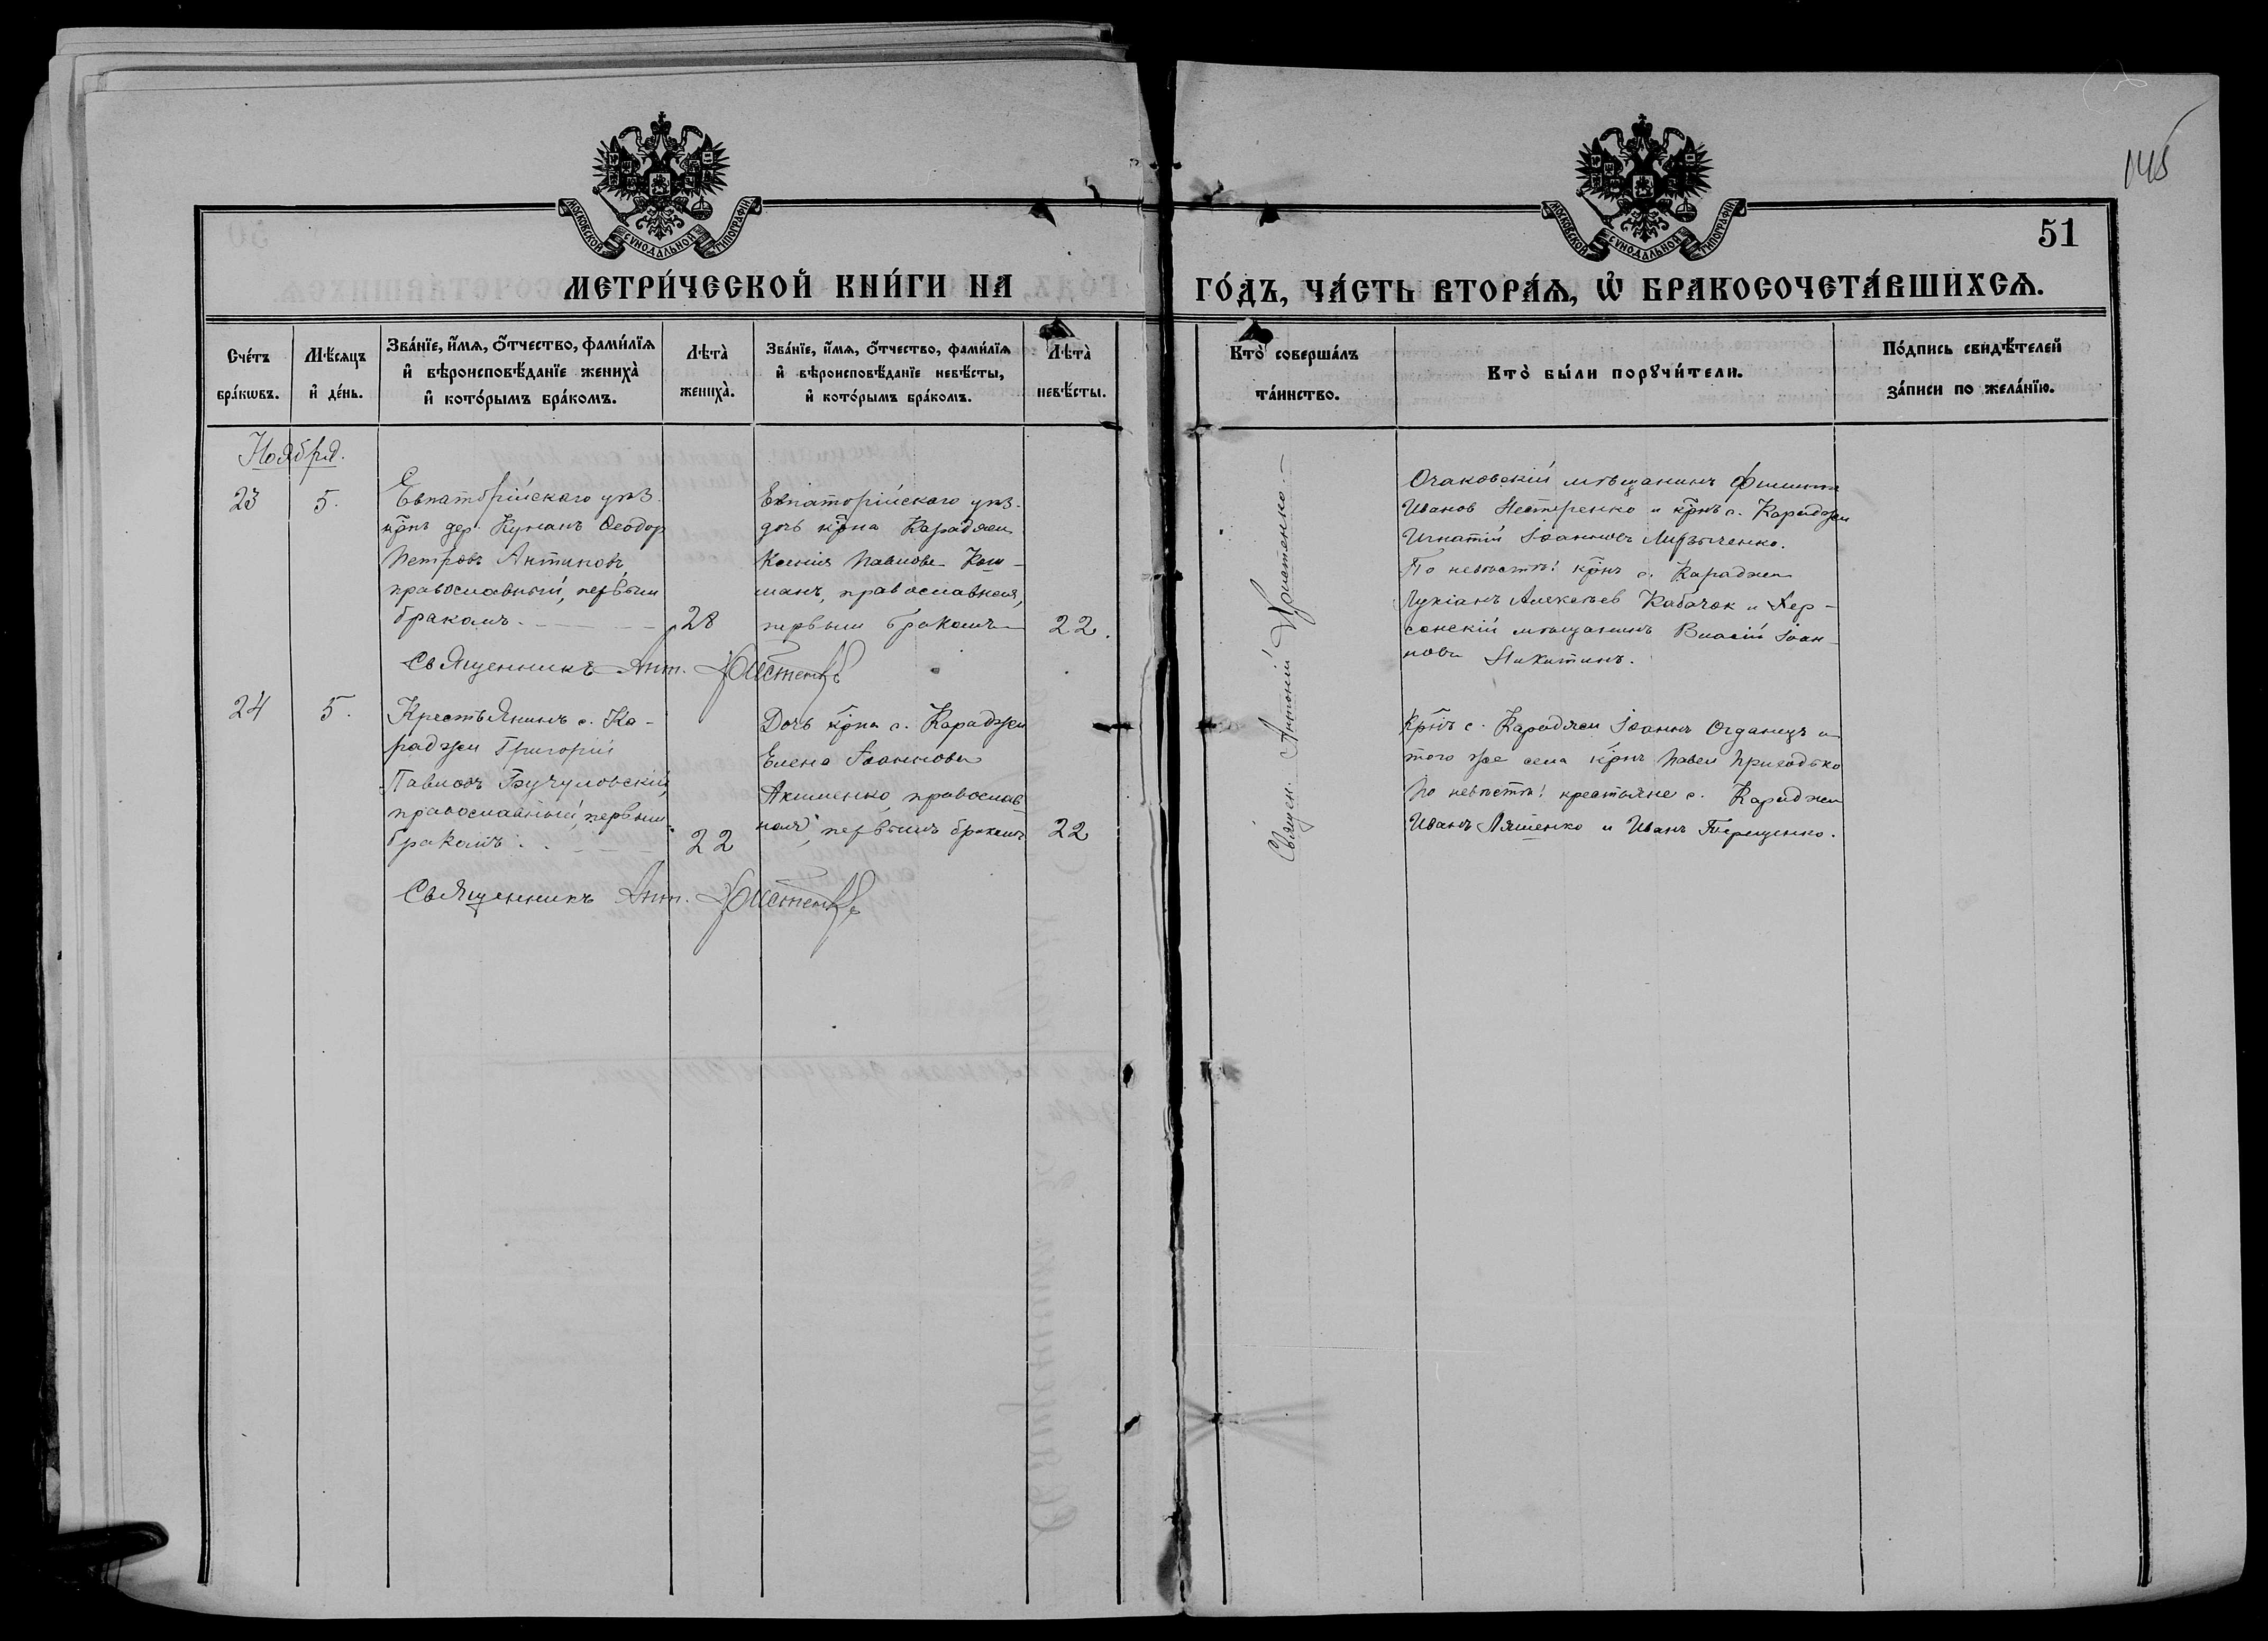 145
МОСКОВСКОЙ СѴНОДАЛЬНОЙ ТИПОГРАФІИ
МОСКОВСКОЙ СѴНОДАЛЬНОЙ ТИПОГРАФІИ
51
МЕТРИ́ЧЕСКОЙ КНИ́ГИ НА ГО́ДЪ, ЧА́СТЬ ВТОРА́Ѧ, Ѡ҆ БРАКОСОЧЕТА́ВШИХСѦ.
Сче́тъ
бра́кѡвъ.
Мѣ́сѧцъ
и҆ де́нь.
Зва́нїе, и҆́мѧ, ѻ҆́тчество, фами́лїѧ
и҆ вѣроисповѣ́данїе жениха̀
и҆ кото́рымъ бра́комъ.
Лѣ́та̀
жениха̀.
Зва́нїе, и҆́мѧ, ѻ҆́тчество, фами́лїѧ
и҆ вѣроисповѣ́данїе невѣ́сты,
и҆ кото́рымъ бра́комъ.
Лѣ́та̀
невѣ́сты.
Кто̀ соверша́лъ
та́инство.
Кто̀ бы́ли порꙋчи́тели.
По́дпись свидѣ́телей
за́писи по жела́нїю.
Ноября.
23
5.
Евпаторійскаго уѣз.
крнъ дер. Кунанъ Ѳеодор
Петровъ Антиповъ,
православный, первымъ
бракомъ.
28
Евпаторійскаго уѣз.
дочь крна Караджи
Ксенія Павлова Кош-
манъ, православная,
первымъ бракомъ
22.
Священникъ Ант.
Священ. Антоній Хрматенко
Очаковскій мѣщанинъ Филиппъ
Иванов Нестеренко и крнъ с. Караджи
Игнатій Іоанновъ
По невѣстѣ: крнъ с. Караджи
Лукіанъ Алексѣев Кабачок и Хер-
сонскій мѣщанинъ Власій Іоан-
новъ Никитинъ.
24
5.
Крестьянинъ с. Ка-
раджи Григорій
Павловъ Бучуловскій,
православный, первымъ
бракомъ.
22
Дочь крна с. Караджи
Елена Іоаннова
Акименко, православ-
ная, первымъ бракомъ
22
Священникъ Ант.
Крнъ с. Караджи Іоаннъ Огданецъ и
того же села крнъ Павел Приходько
По невѣстѣ: крестьяне с. Караджи
Иванъ Ляшенко и Иванъ Терещенко.